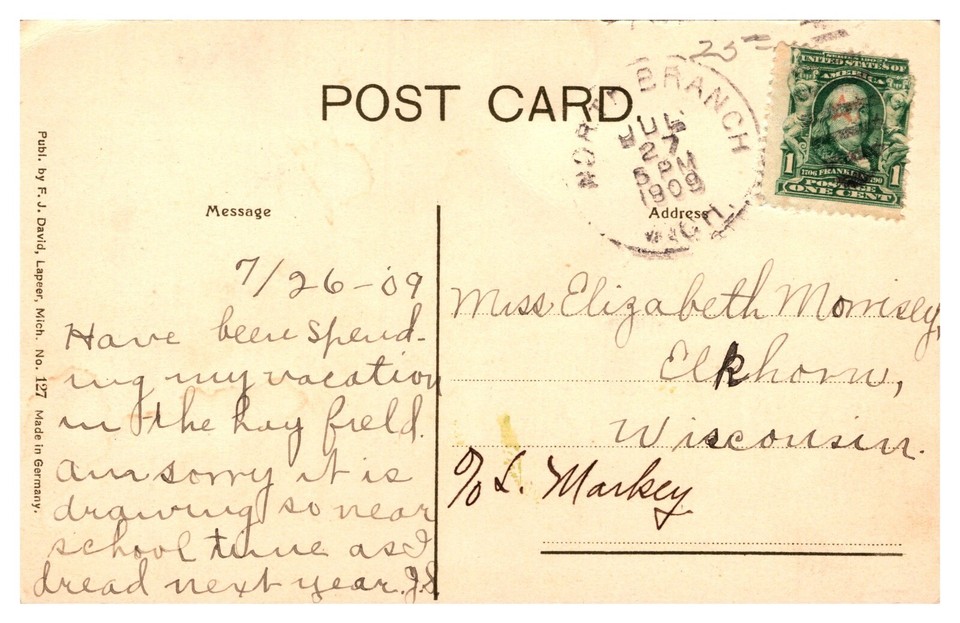 POST CARD.
NORTH BRANCH
JUL
27
5 PM
1909
MICH.
25
SERIES 1902
UNITED STATES OF
AMERICA
1 1
1706 FRANKLIN 1790
POSTAGE
ONE CENT
Publ. by F. J. David, Lapeer, Mich. No. 127 Made in Germany.
Message
7/26-09
Have been spend-
ing my vacation
in the hay field.
am sorry it is
drawing so near
school time as I
dread next year. J.S
Address
Miss Elizabeth Morrisey,
Elkhorn,
Wisconsin.
c/o L. Markey